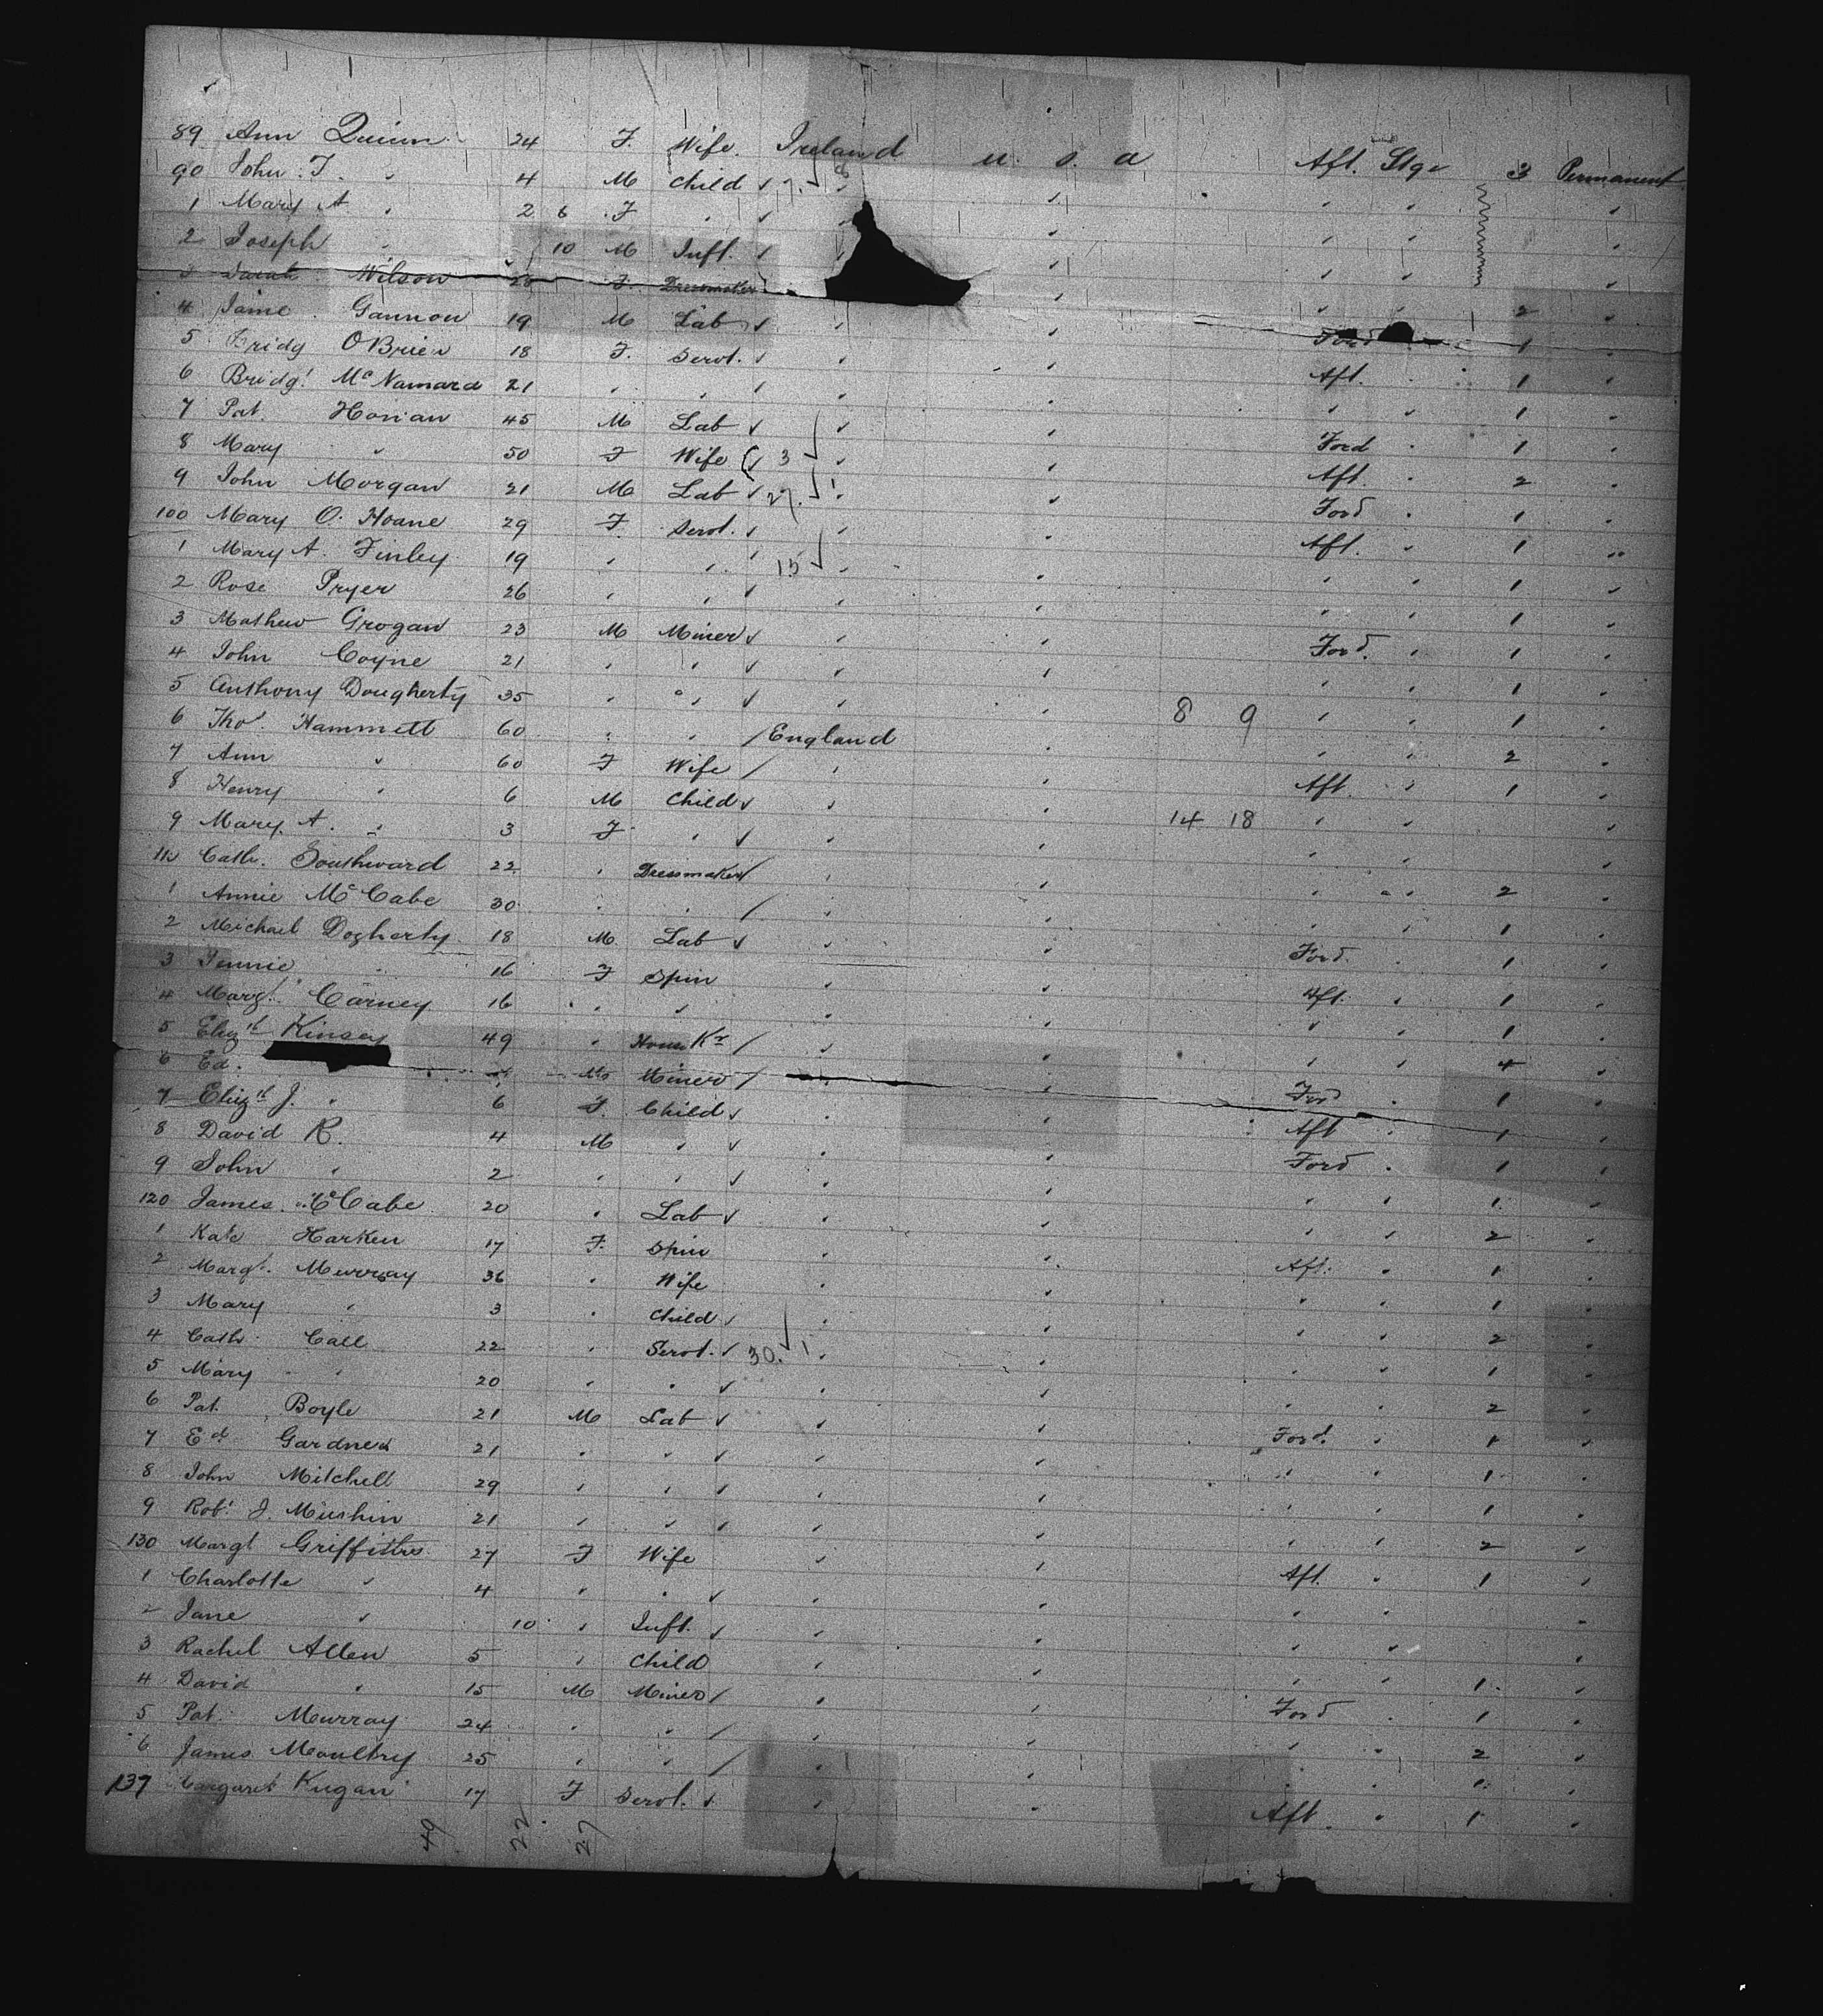 89 Ann Quinn 24 F. Wife. Ireland U. S. A Aft. Stge 3 Permanent
90 John. T. " 4 M Child ✓ 7. ✓ " " " " "
1 Mary A. " 2 6 F " ✓ " " " " "
2 Joseph " 10 M Inft. ✓ " " " " "
3 Sarah Wilson 28 F. Dressmaker " " " 2 "
4 Jame. Gannon 19 M Lab ✓ " " Ford " 1 "
5 Bridg O'Brien 18 F. Servt. ✓ " " Aft. " 1 "
6 Bridgt McNamara 21 " " ✓ " " " " 1 "
7 Pat. Honan 45 M Lab ✓ " " Ford " 1 "
8 Mary " 50 F Wife ✓ 3 ✓ " " Aft. " 2 "
9 John Morgan 21 M Lab ✓ 27. ✓ " " Ford " 1 "
100 Mary O. Hoane 29 F. Servt. ✓ " " Aft. " 1 "
1 Mary A. Finley 19 " " ✓ 15 ✓ " " " " 1 "
2 Rose Pryer 26 " " ✓ " " " " 1 "
3 Mathew Grogan 23 M Miner ✓ " " Ford. " 1 "
4 John Coyne 21 " " ✓ " " " " 1 "
5 Anthony Dougherty 35 " " ✓ " " 8 9 " " 1 "
6 Thos. Hammett 60 " " / England " " " 2 "
7 Ann " 60 F Wife / " " Aft. " 1 "
8 Henry " 6 M Child ✓ " " 14 18 " " "
9 Mary. A. " 3 F " ✓ " " " " "
110 Cath. Southward 22 " Dressmaker / " " " " 2 "
1 Annie McCabe 30 " " / " " " " 1 "
2 Michael Dogherty 18 M. Lab ✓ " " Ford. " 1 "
3 Jennie " 16 F Spin " " Aft. " 1 "
4 Margt. Carney 16 " " " " " " 1 "
5 Elizth Kinsey 49 " House Kr / " " " " 4 "
6 Ed. M Miner / " " Ford " 1 "
7 Elizth J. " 6 F. Child ✓ " " Aft " 1 "
8 David R. 4 M " ✓ " " Ford " 1 "
9 John " 2 " " ✓ " " " " 1 "
120 James McCabe 20 " Lab ✓ " " " " 2 "
1 Kate Harken 17 F. Spin " " Aft. " 1 "
2 Margt. Murray 36 " Wife " " " " 1 "
3 Mary " 3 " Child ✓ " " " " 2 "
4 Cath. Call 22 " Servt. ✓ 30. ✓ " " " " 1 "
5 Mary " 20 " " ✓ " " " " 2 "
6 Pat. Boyle 21 M Lab ✓ " " Ford. " 1 "
7 Ed. Gardner 21 " " ✓ " " " " 1 "
8 John Mitchell 29 " " ✓ " " " " 1 "
9 Robt. J. Mushin 21 " " ✓ " " " " 2 "
130 Margt Griffiths 27 F Wife " " Aft. " 1 "
1 Charlotte " 4 " " ✓ " " " " "
2 Jane " 10 " Inft. ✓ " " " " "
3 Rachel Allen 5 " Child " " " " 1 "
4 David " 15 M Miner / " " Ford " 1 "
5 Pat. Murray 24 " " / " " " " 2 "
6 James Moultry 25 " " / " " " " 1 "
137 Margaret Kugan 17 F Servt. ✓ " " Aft. " 1 "
49 22 27